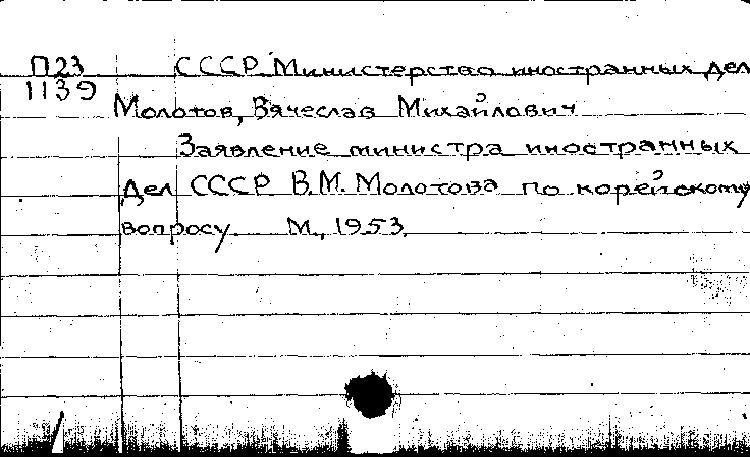 П23 СССР. Министерство иностранных дел
1139
Молотов, Вячеслав Михайлович
Заявление министра иностранных
дел СССР В.М. Молотова по корейскому
вопросу. М., 1953.